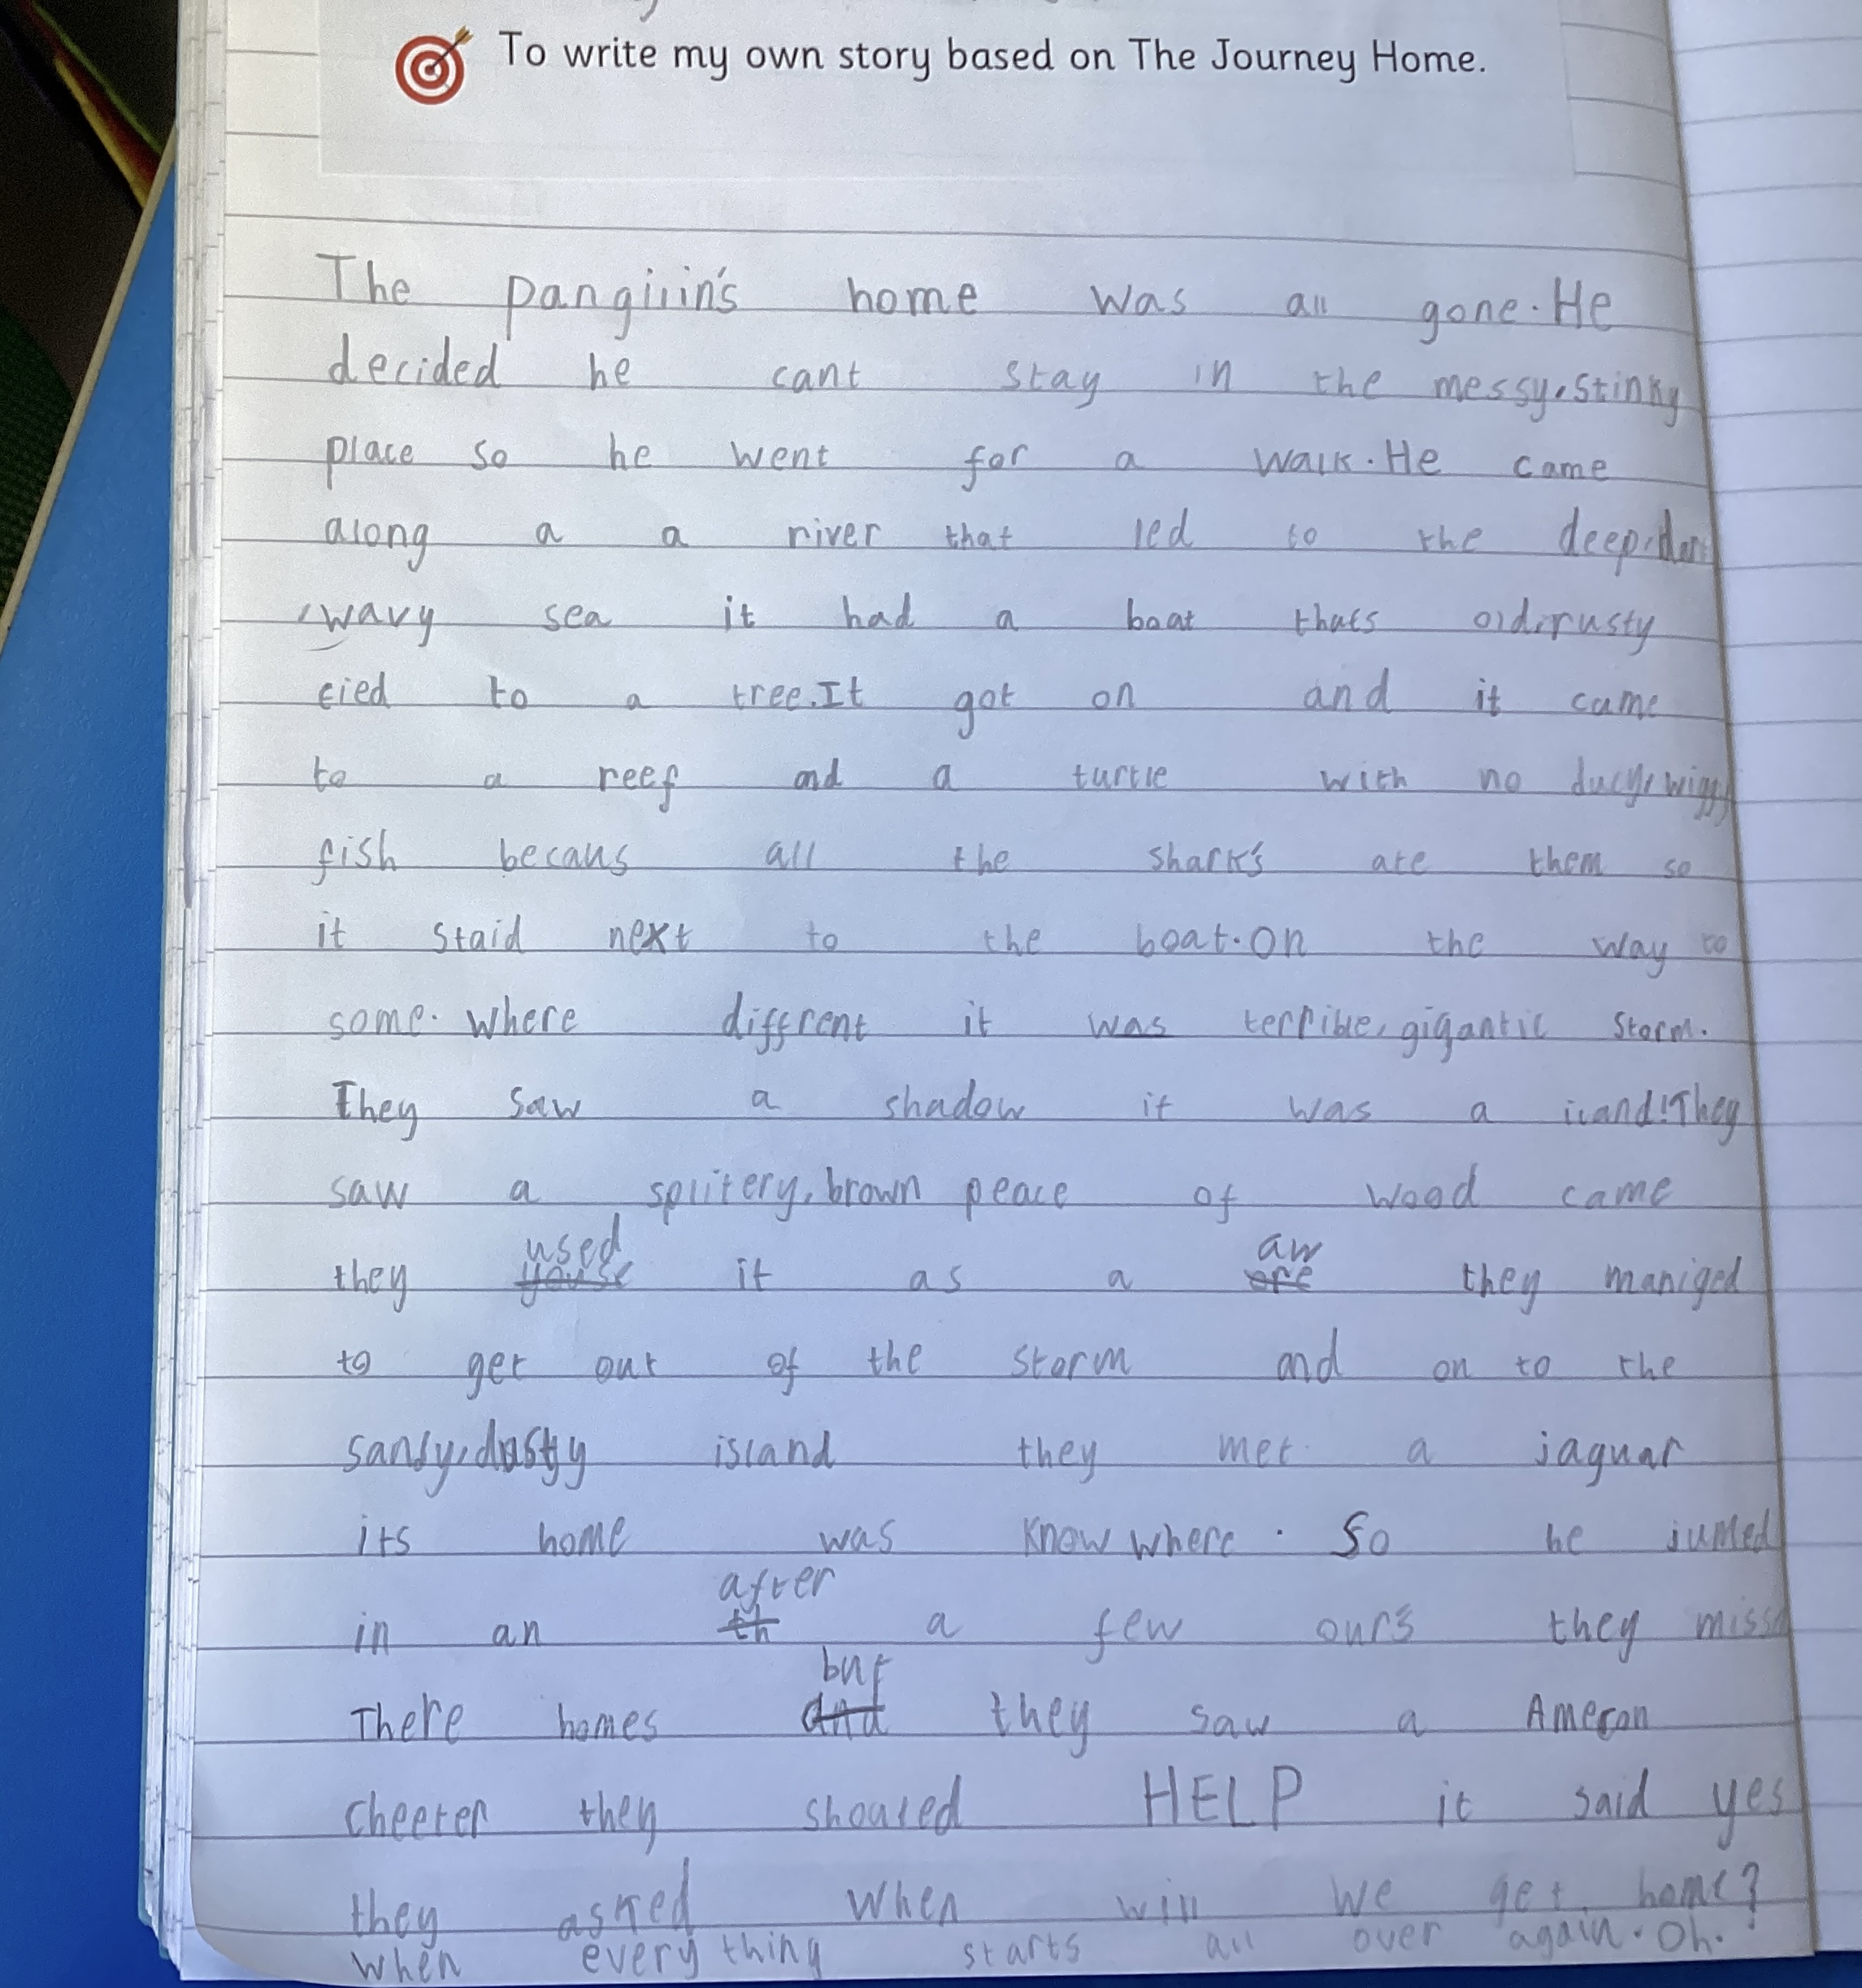 To write my own story based on The Journey Home.
The pangiiin's home was all gone. He
decided he cant stay in the messy, stinky
place so he went for a walk. He came
along a a river that led to the deep,
, wavy sea it had a boat thats old, rusty
tied to a tree. It got on and it came
to a reef and a turtle with no
fish becaus all the shark's ate them so
it staid next to the boat. On the way to
some. where diffrent it was terrible, gigantic storm.
They saw a shadow it was a iland! They
saw a splitery, brown peace of wood came
they used it as a aw they maniged
to get out of the storm and on to the
sandy, dusty island they met a jaguar
its home was know where. So he jumed
in an after a few our's they
There homes but they saw a Ameron
cheeter they shouted HELP it said yes
they asked when will we get home?
when every thing starts all over again. Oh.